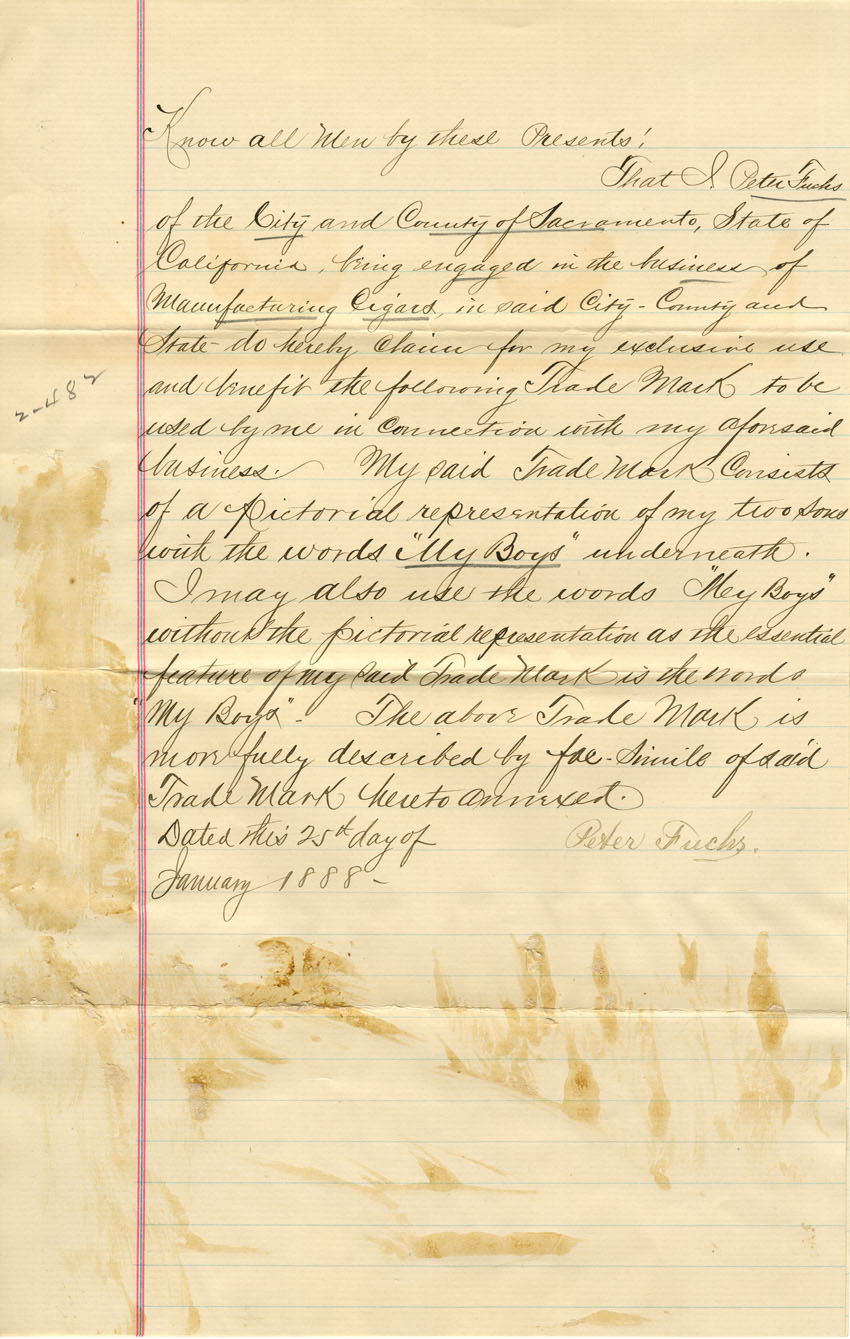 Know all Men by these Presents!
That I. Peter Fuchs
of the City and County of Sacramento, State of
California, being engaged in the business of
Manufacturing Cigars, in said City - County and
State - do hereby claim for my exclusive use
and benefit the following Trade Mark to be
used by me in connection with my aforesaid
business. My said Trade Mark Consists
of a pictorial representation of my two Sons
with the words "My Boys" underneath.
I may also use the words "My Boys"
without the pictorial representation as the essential
feature of my said Trade Mark is the words
"My Boys" - The above Trade Mark is
more fully described by fac-Simile of said
Trade Mark hereto annexed.
Dated this 25th day of
Peter Fuchs.
January 1888 -
2-482